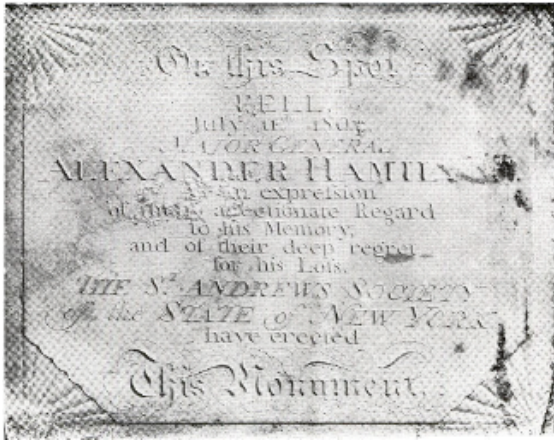 On this Spot
FELL,
July 11th 1804,
MAJOR GENERAL
ALEXANDER HAMIL
expression
of their affectionate Regard
to his Memory,
and of their deep regret
for his Loſs,
THE St ANDREWS SOCIETY
of the STATE of NEW YORK
have erected
This Monument.